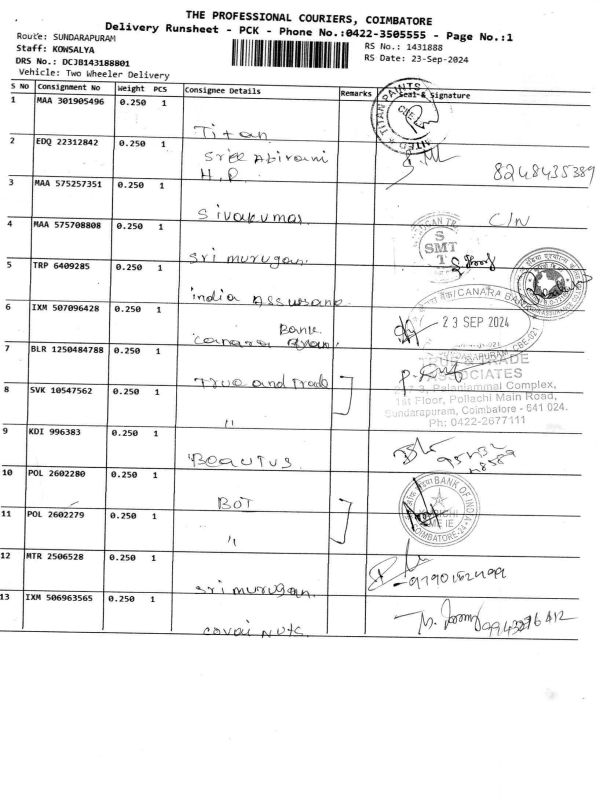 THE PROFESSIONAL COURIERS, COIMBATORE
Delivery Runsheet - PCK - Phone No.:0422-3505555 - Page No.:1
Route: SUNDARAPURAM
RS No.: 1431888
Staff: KOWSALYA
RS Date: 23-Sep-2024
DRS No.: DCJB143188801
Vehicle: Two Wheeler Delivery
S No Consignment No Weight PCS Consignee Details Remarks Seal & Signature
1 MAA 301905496 0.250 1 Titan
TITAN PAINTS CBE
2 EDQ 22312842 0.250 1 Sree Abirami
H.P
8248435389
3 MAA 575257351 0.250 1 Sivakumar C/N
4 MAA 575708808 0.250 1 Sri murugan
S
SMT
T
5 TRP 6409285 0.250 1 india Assurance
CANARA BANK
23 SEP 2024
SUNDARAPURAM, CBE-021
6 IXM 507096428 0.250 1 Canara Bank
7 BLR 1250484788 0.250 1 True and Trade
TRUE & TRADE
ASSOCIATES
Palaniammal Complex,
1st Floor, Pollachi Main Road,
Sundarapuram, Coimbatore - 641 024.
Ph: 0422-2677111
8 SVK 10547562 0.250 1 "
9 KDI 996383 0.250 1 Beautus
10 POL 2602280 0.250 1 BOI
BANK OF INDIA
COIMBATORE-24
11 POL 2602279 0.250 1 "
12 MTR 2506528 0.250 1 Sri murugan
13 IXM 506963565 0.250 1 covai Nuts